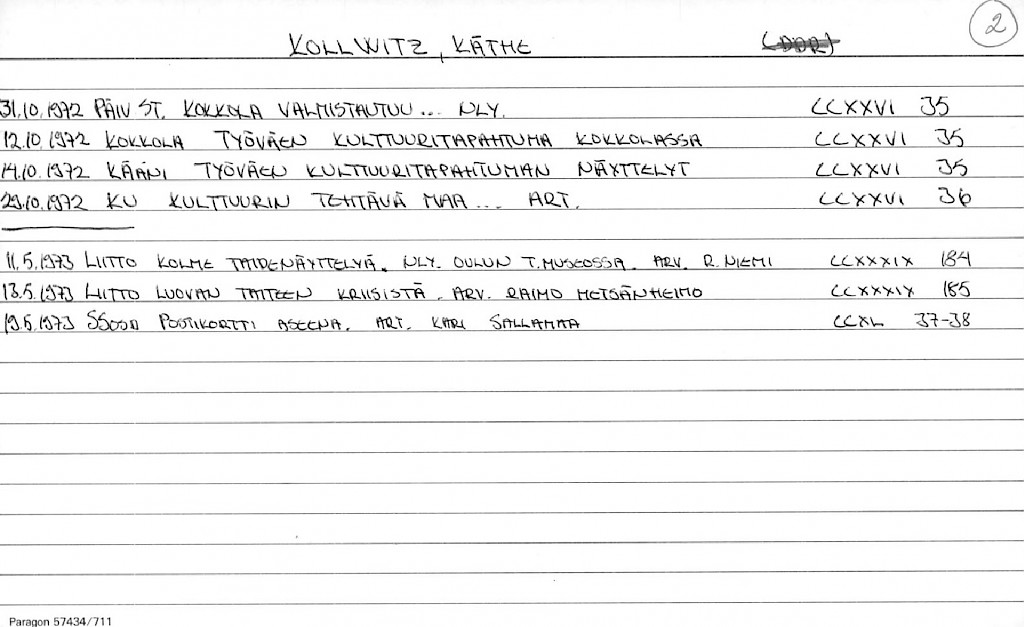 2
KOLLWITZ, KÄTHE (DDR)
31.10.1972 PÄIV ST. KOKKOLA VALMISTAUTUU... NLY. CCXXVI 35
12.10.1972 KOKKOLA TYÖVÄEN KULTTUURITAPAHTUMA KOKKOLASSA CCXXVI 35
14.10.1972 KÄÄNI TYÖVÄEN KULTTUURITAPAHTUMAN NÄYTTELYT CCXXVI 35
29.10.1972 KU KULTTUURIN TEHTÄVÄ MAA... ART. CCXXVI 36
11.5.1973 LIITTO KOLME TAIDENÄYTTELYÄ. NLY. OULUN T.MUSEOSSA. ARV. R. NIEMI CCXXXIX 184
13.5.1973 LIITTO LUOVAN TAITEEN KRIISISTÄ. ARV. RAIMO METSÄNHEIMO CCXXXIX 185
POSTIKORTTI ASEENA. ART. KARI SALLAMAA CCXL 37-38
Paragon 57434/711